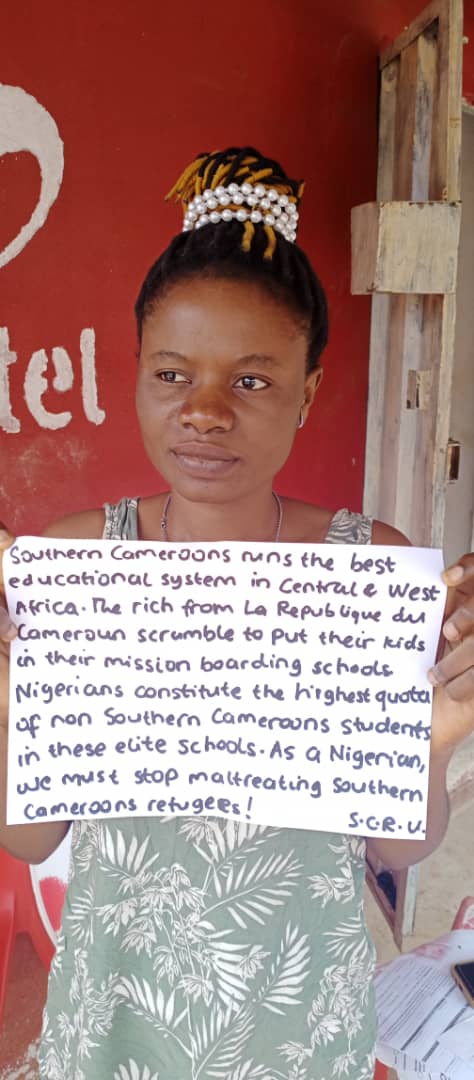 tel
Southern Cameroons runs the best
educational system in Central & West
Africa. The rich from La Republique du
Cameroun scramble to put their kids
in their mission boarding schools.
Nigerians constitute the highest quota
of non Southern Cameroons students
in these elite schools. As a Nigerian,
we must stop maltreating Southern
Cameroons refugees!
S.C.R.U.